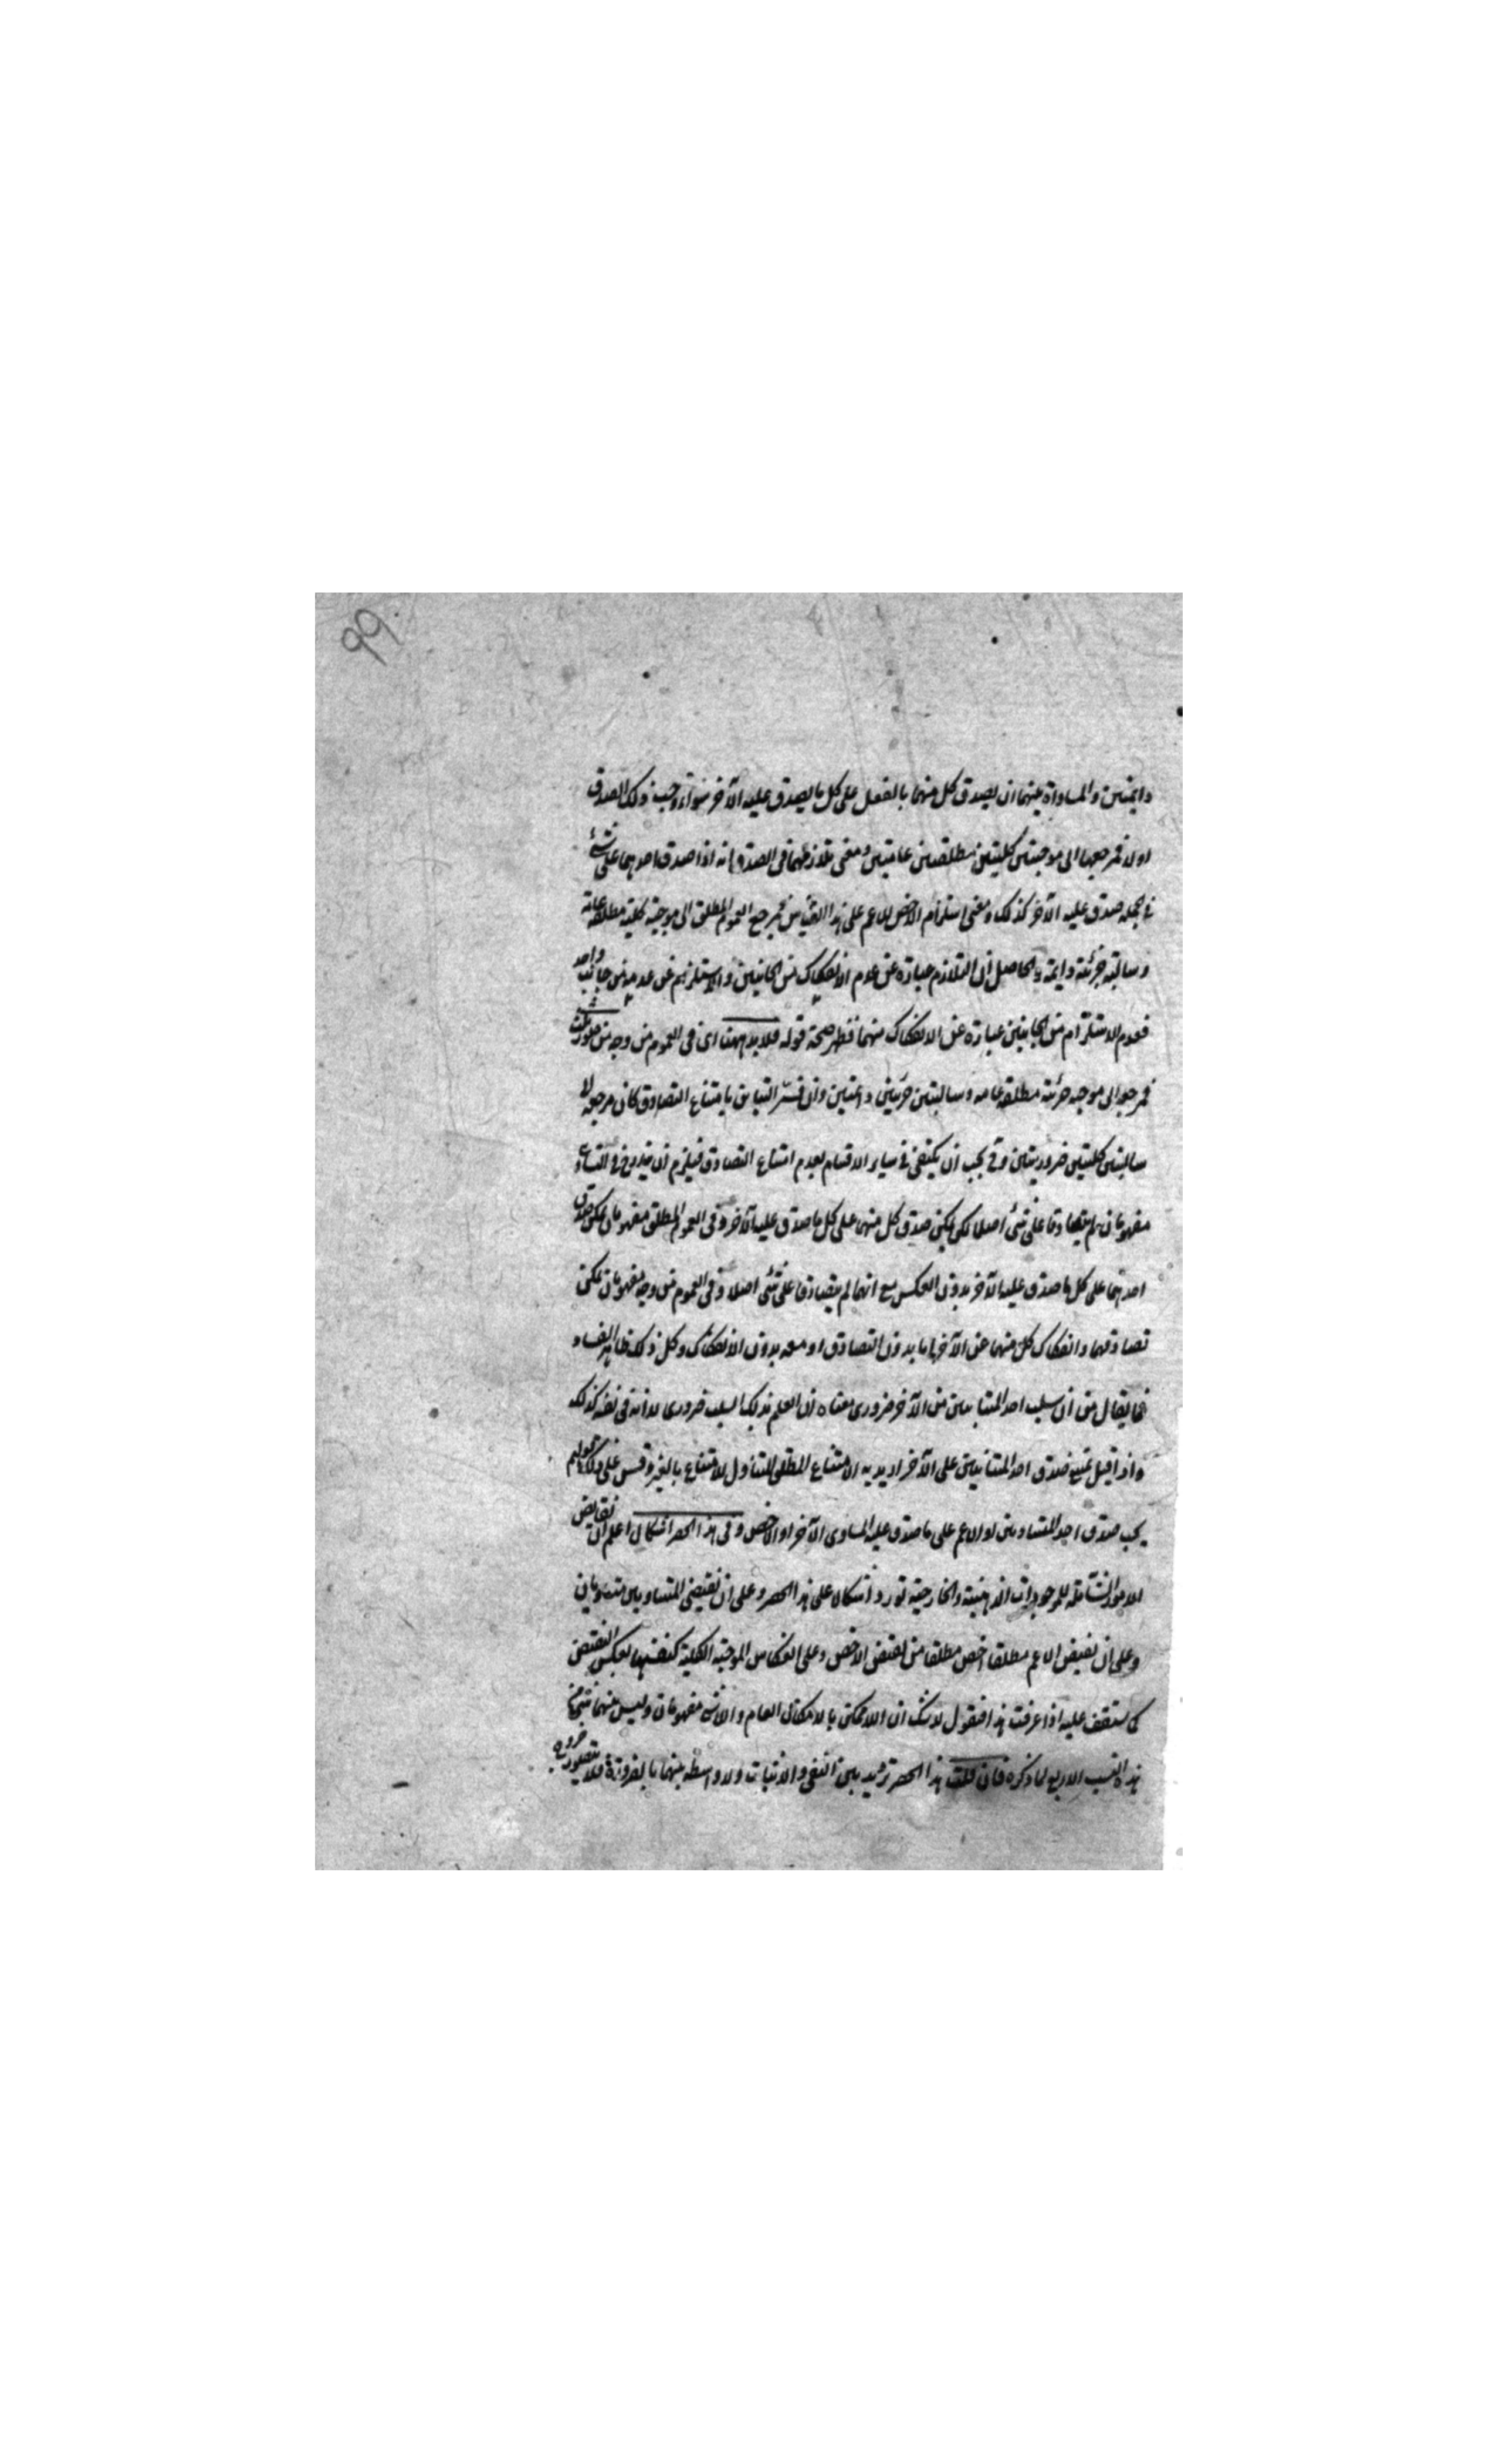 ٩٩
دايمتين والمساواة بينهما ان يصدق كل منهما بالفعل على كل ما يصدق عليه الآخر سواء وجب ذلك الصدق
اولا فمرجعها الى موجبتين كليتين مطلقتين عامتين ومعنى تلازمهما في الصدق انه اذا صدق احدهما على شئ
في الجملة صدق عليه الآخر كذلك ومعنى استلزام الاخص للاعم على هذا القياس فمرجع العموم المطلق الى موجبة كلية مطلقة عامة
وسالبة جزئية دايمة والحاصل ان التلازم عبارة عن عدم الانفكاك من الجانبين والاستلزام عن عدمه من جانب واحد
فعدم الاستلزام من الجانبين عبارة عن الانفكاك منهما فظهر صحة قوله فلا بد ههنا اى في العموم من وجه من صور ثلث
فمرجعه الى موجبة جزئية مطلقة عامة وسالبتين جزئيتين دايمتين وان فسر التباين بامتناع التصادق كان مرجعه لا
سالبتين كليتين ضروريتين وح يجب ان يكتفى في ساير الاقسام بعدم امتناع التصادق فيلزم ان يندرج في التساوى
مفهومان لم يتصادقا على شئ اصلا لكن يمكن صدق كل منهما على كل ما صدق عليه الآخر وفى العموم المطلق مفهومان يمكن صدق
احدهما على كل ما صدق عليه الآخر بدون العكس مع انهما لم يتصادقا على شئ اصلا وفى العموم من وجه مفهومان يمكن
تصادقهما وانفكاك كل منهما عن الآخر اما بدون التصادق او معه بدون الانفكاك وكل ذلك ظاهر الفساد
فما يقال من ان سلب احد المتباينين من الآخر ضرورى معناه ان العلم بذلك السلب ضرورى لا انه في نفسه كذلك
واذا قيل يمتنع صدق احد المتباينين على الآخر اريد به الامتناع المطلق المتناول للامتناع بالغير وقس على ذلك قولهم
يجب صدق احد المتساويين او الاعم على ما صدق عليه المساوى الآخر او الاخص وفى هذا الحصر اشكال اعلم ان نقايض
الامور الشاملة للموجودات الذهنية والخارجية تورد اشكالا على هذا الحصر وعلى ان نقيضى المتساويين متساويان
وعلى ان نقيض الاعم مطلقا اخص مطلقا من نقيض الاخص وعلى انعكاس الموجبة الكلية كنفسها بعكس النقيض
كما ستقف عليه اذا عرفت هذا فنقول لا شك ان اللاممكن بالامكان العام واللاشئ مفهومان وليس بينهما شئ من
هذه النسب الاربع لما ذكره فان قلت هذا الحصر ترديد بين النفى والاثبات ولا واسطة بينهما بالضرورة فلا يتصور